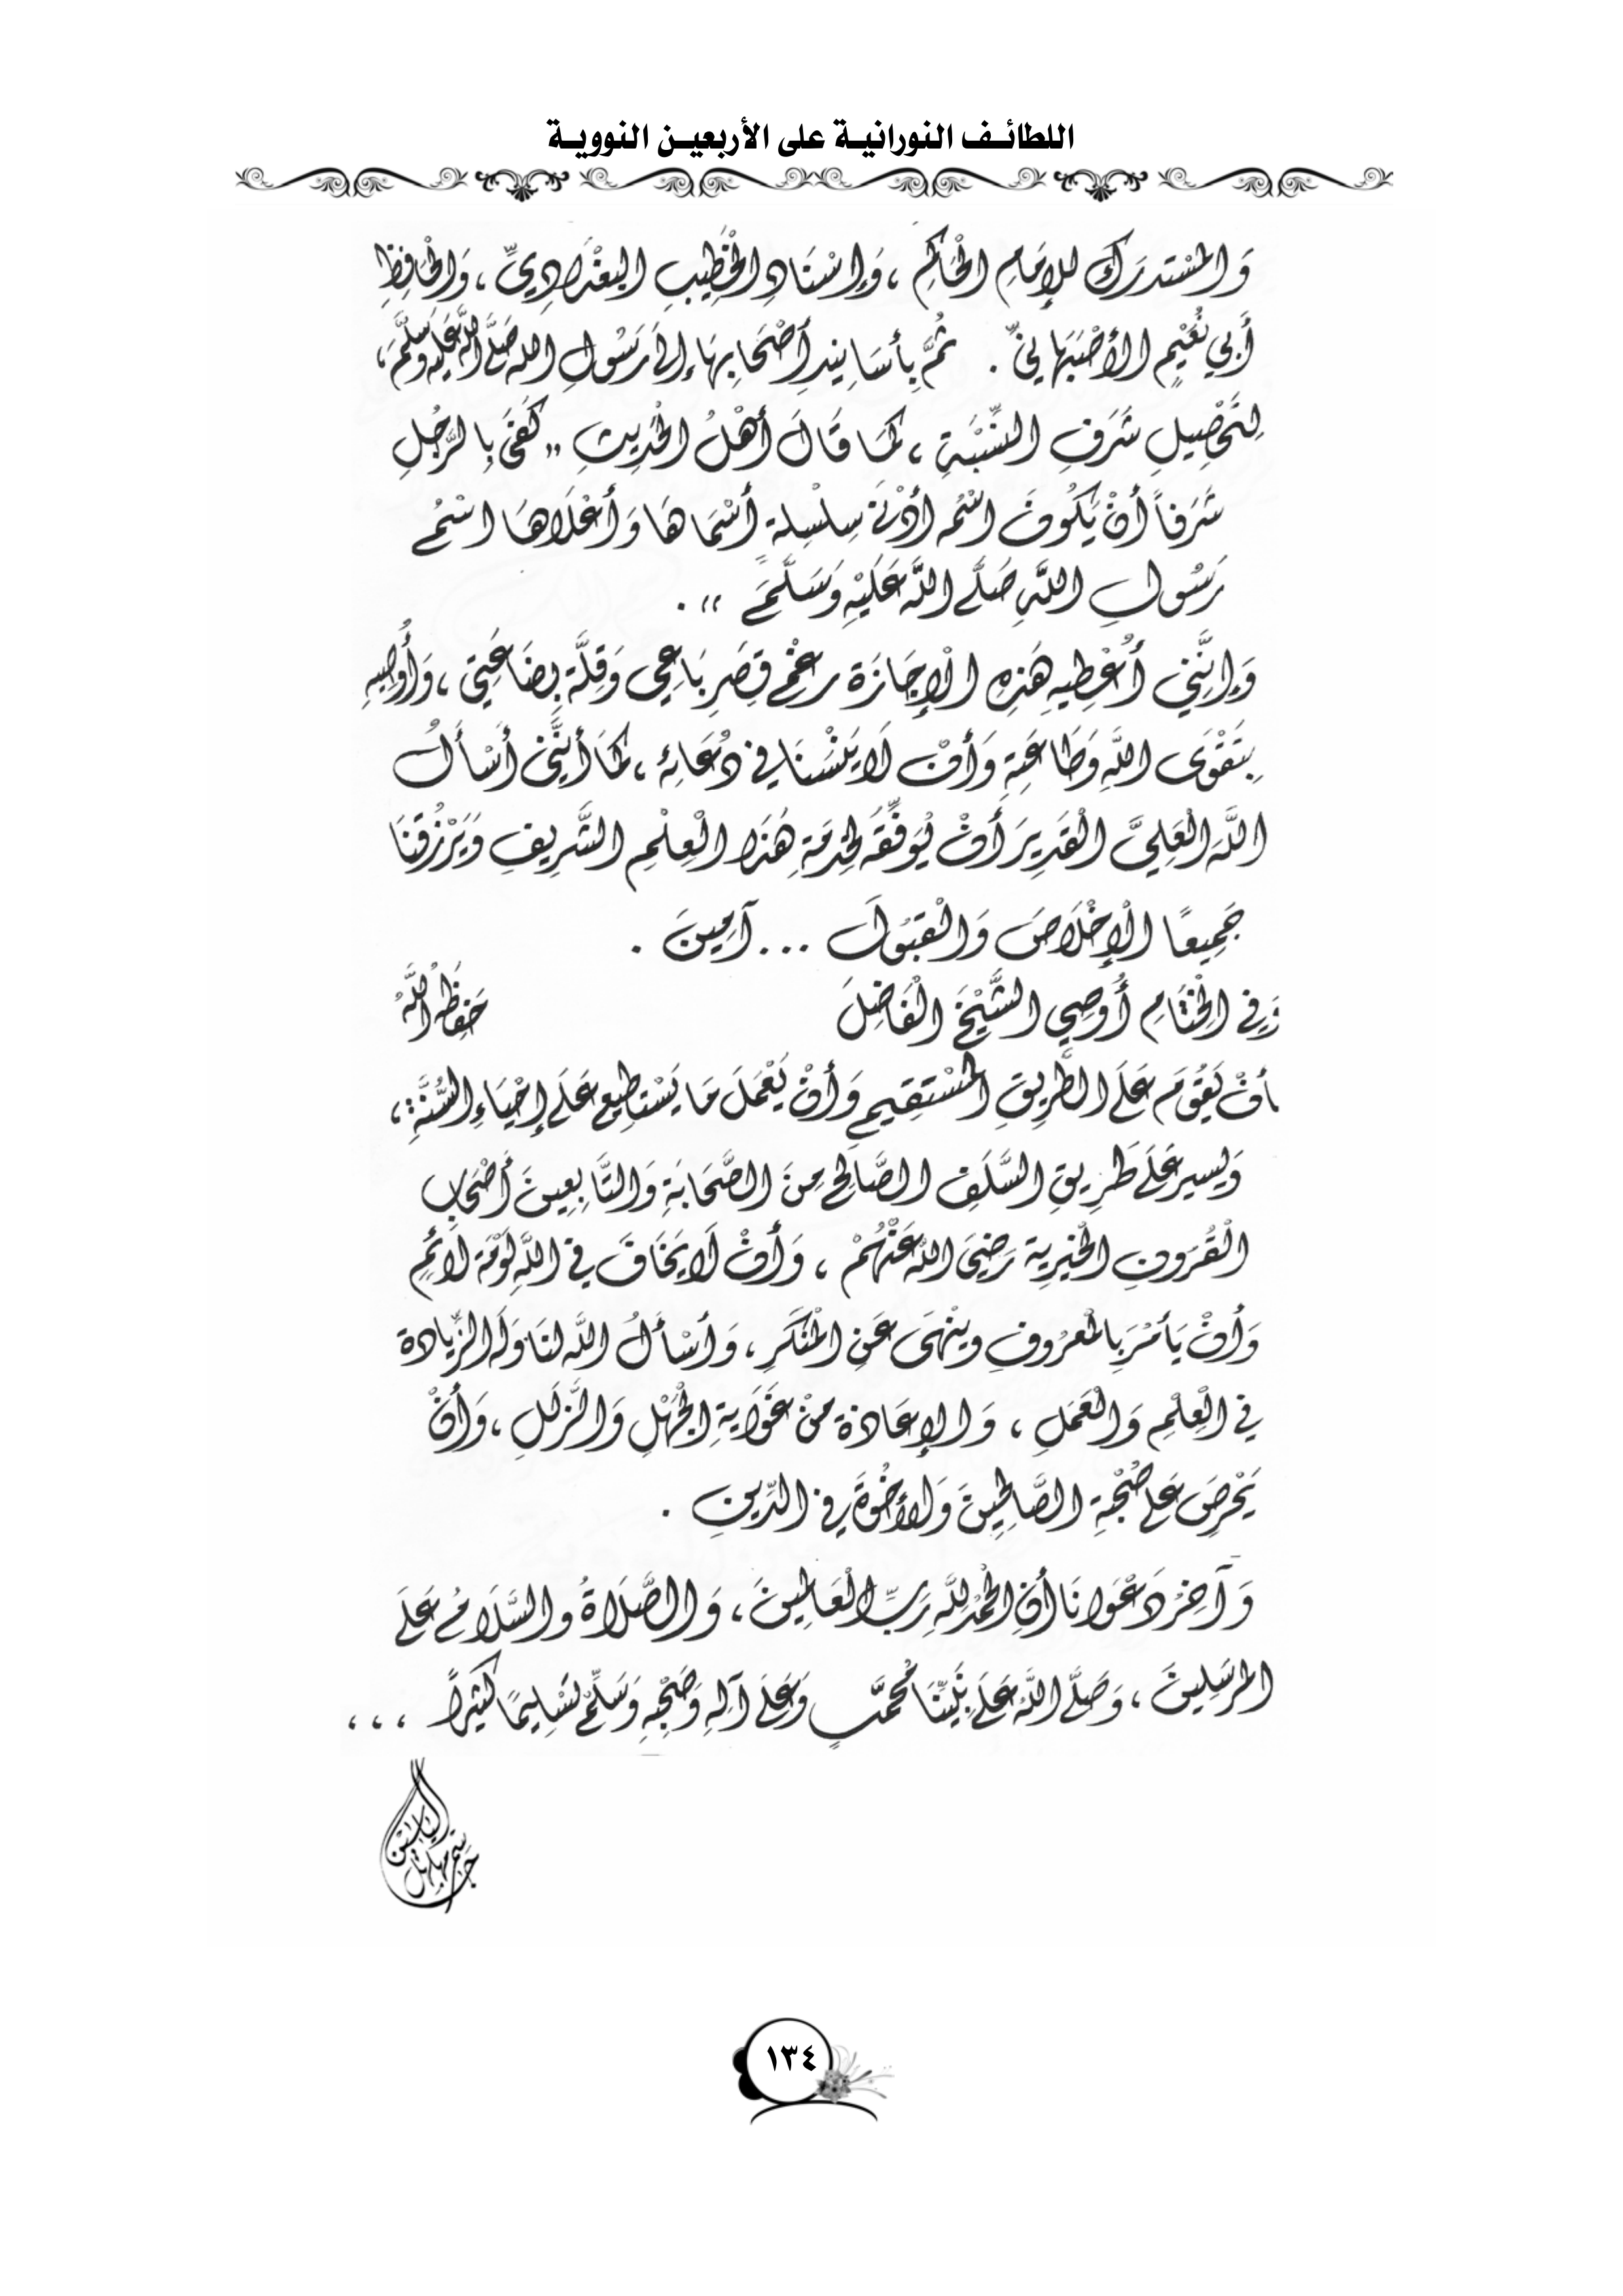 اللطائف النورانية على الأربعين النووية
وَالمُسْتدرَك للإمَامِ الْحَاكِمِ ، وَإسْنَادِ الْخَطِيبِ البَغْدَادِيِّ ، وَالْحَافِظِ
أَبِي نُعَيْمٍ الأَصْبَهَانِيِّ . ثُمَّ بِأَسَانِيدِ أَصْحَابِهَا إلَى رَسُولِ الله صَلَّى اللَّهُ عَلَيْهِ وَسَلَّمَ ،
لِتَحْصِيلِ شَرَفِ النِّسْبَةِ ، كَمَا قَالَ أَهْلُ الْحَدِيثِ " كَفَى بِالرَّجُلِ
شَرَفاً أَنْ يَكُونَ اسْمُه أَدْنَى سِلْسِلة أَسْمَاهَا وَأَعْلَاهَا اسْمُ
رَسُولِ اللَّهِ صَلَّى اللَّهُ عَلَيْهِ وَسَلَّمَ " .
وَإِنَّنِي أُعْطِيهِ هَذِهِ الْإِجَازَة رغْمَ قِصَرِ بَاعِي وَقِلَّة بِضَاعَتِي ، وَأُوصِيهِ
بِتَقْوَى اللَّهِ وَطَاعَتِهِ وَأَنْ لَا يَنْسَنَا فِي دُعَائِهِ ، كَمَا أَنَّنِي أَسْأَلُ
اللَّهَ الْعَلِيَّ الْقَدِيرَ أَنْ يُوَفِّقَهُ لِخِدمَةِ هَذَا الْعِلْمِ الشَّرِيفِ وَيَرْزُقنَا
جَمِيعًا الْإِخْلَاصَ وَالْقَبُولَ ... آمِينَ .
وَفِي الْخِتَامِ أُوصِي الشَّيْخَ الْفَاضِلَ حَفِظَهُ اللَّهُ
أَنْ يَقُومَ عَلَى الطَّرِيقِ الْمُسْتَقِيمِ وَأَنْ يَعْمَلَ مَا يَسْتَطِيع عَلَى إِحْيَاءِ السُّنَّةِ ،
وَيسير عَلَى طَرِيقِ السَّلَفِ الصَّالِحِ مِنَ الصَّحَابَةِ وَالتَّابِعِينَ أَصْحَابِ
الْقُرَونِ الْخيرِية رَضِيَ اللَّهُ عَنْهُمْ ، وَأَنْ لَا يَخَافَ فِي اللَّهِ لَوْمَة لَائِمٍ
وَأَنْ يَأمُرَ بِالْمعْرُوفِ وينْهَى عَنِ الْمُنْكَرِ ، وَأَسْأَلُ اللَّه لنَا وَلَهُ الزِّيادة
فِي الْعِلْمِ وَالْعَمَلِ ، وَالإعَاذة مِنْ غَوَايةِ الْجَهْلِ وَالزَّلَلِ ، وَأَنْ
يَحْرِصَ عَلَى صُحْبَةِ الصَّالِحِينَ وَالأخُوَّةِ فِي الدِّينِ .
وَآخِرُ دَعْوَانَا أَنِ الْحَمْدُ لِلَّهِ رَبِّ الْعَالَمِينَ ، وَالصَّلَاةُ والسَّلَامُ عَلَى
المرسَلِينَ ، وَصَلَّى اللَّهُ عَلَى نَبِيِّنَا مُحَمَّدٍ وَعَلَى آلِهِ وَصَحْبِهِ وَسَلِّمْ تَسْلِيمًا كَثِيرًا ، ، ،
١٣٤